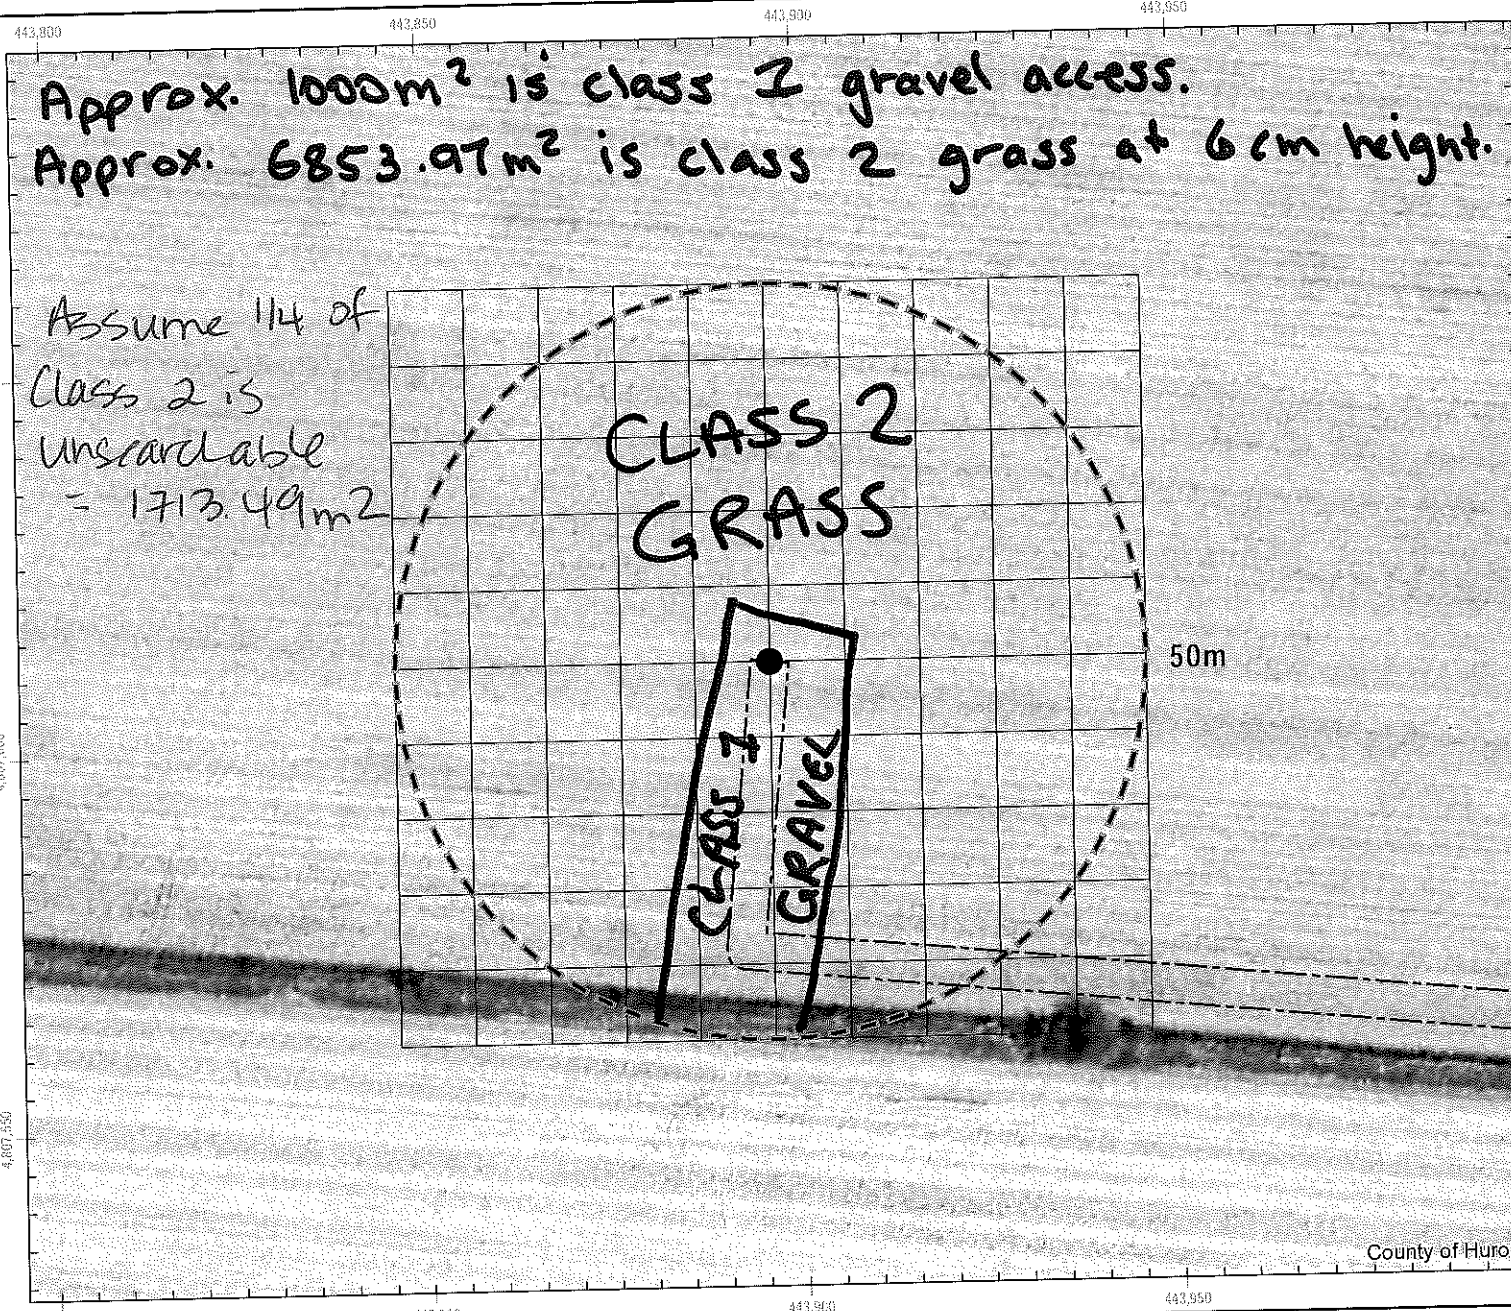 443,800 443,850 443,900 443,950
Approx. 1000m² is class 1 gravel access.
Approx. 6853.97m² is class 2 grass at 6cm height.
Assume 1/4 of
Class 2 is
unsearchable
= 1713.49m2
CLASS 2
GRASS
50m
CLASS 1
GRAVEL
4,807,550
County of Huro
443,900 443,950